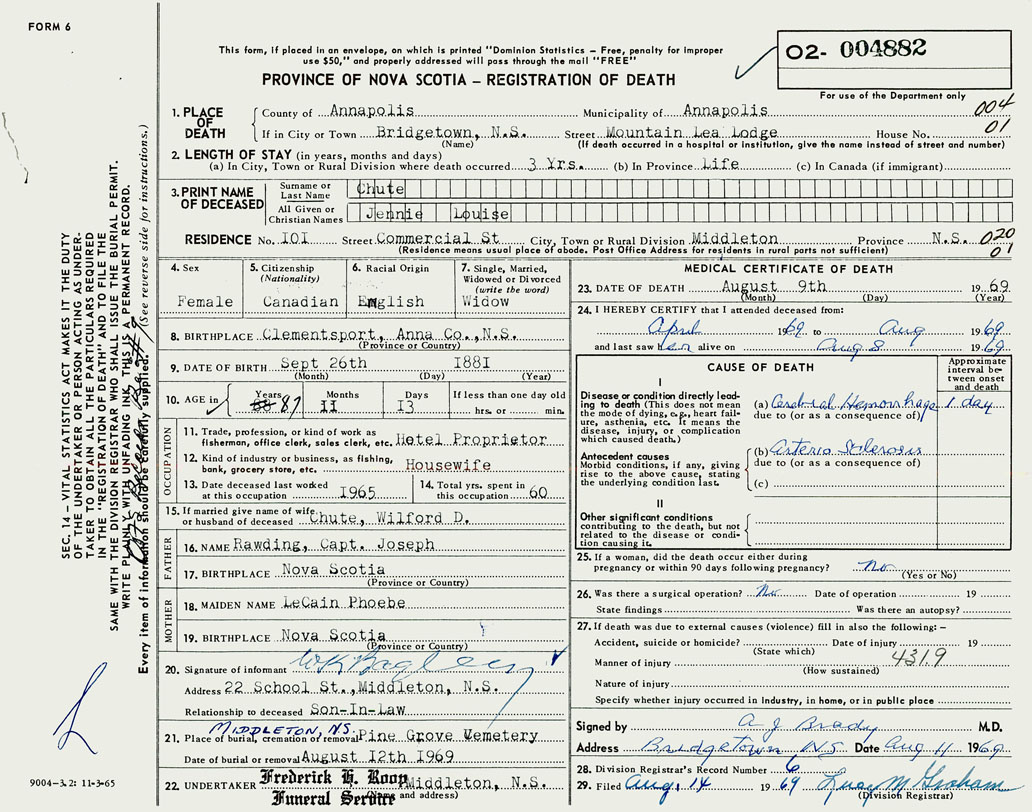 FORM 6
This form, if placed in an envelope, on which is printed "Dominion Statistics – Free, penalty for improper
use $50," and properly addressed will pass through the mail "FREE"
PROVINCE OF NOVA SCOTIA – REGISTRATION OF DEATH
02- 004882
For use of the Department only
1. PLACE OF DEATH
County of Annapolis Municipality of Annapolis 004
If in City or Town Bridgetown, N.S. Street Mountain Lea Lodge House No. 01
(Name) (If death occurred in a hospital or institution, give the name instead of street and number)
2. LENGTH OF STAY (in years, months and days)
(a) In City, Town or Rural Division where death occurred 3 Yrs. (b) In Province Life (c) In Canada (if immigrant)
3. PRINT NAME OF DECEASED
Surname or Last Name Chute
All Given or Christian Names Jennie Louise
RESIDENCE No. IOI Street Commercial St City, Town or Rural Division Middleton Province N.S. 020
(Residence means usual place of abode. Post Office Address for residents in rural parts not sufficient) 01
4. Sex
Female
5. Citizenship
(Nationality)
Canadian
6. Racial Origin
English
7. Single, Married,
Widowed or Divorced
(write the word)
Widow
8. BIRTHPLACE Clementsport, Anna Co., N.S.
(Province or Country)
9. DATE OF BIRTH Sept 26th I88I
(Month) (Day) (Year)
10. AGE in Years Months Days If less than one day old
88 87 II I3 hrs. or min.
OCCUPATION
11. Trade, profession, or kind of work as
fisherman, office clerk, sales clerk, etc. Hotel Proprietor
12. Kind of industry or business, as fishing,
bank, grocery store, etc. Housewife
13. Date deceased last worked
at this occupation I965
14. Total yrs. spent in
this occupation 60
15. If married give name of wife
or husband of deceased Chute, Wilford D.
FATHER
16. NAME Rawding, Capt. Joseph
17. BIRTHPLACE Nova Scotia
(Province or Country)
MOTHER
18. MAIDEN NAME LeCain Phoebe
19. BIRTHPLACE Nova Scotia
(Province or Country)
20. Signature of informant
Address 22 School St., Middleton, N.S.
Relationship to deceased Son-In-Law
MIDDLETON, N.S.
21. Place of burial, cremation or removal Pine Grove Wemetery
Date of burial or removal August I2th I969
22. UNDERTAKER Frederick H. Roop Middleton, N.S.
(Name and address)
Funeral Service
MEDICAL CERTIFICATE OF DEATH
23. DATE OF DEATH August 9th 1969
(Month) (Day) (Year)
24. I HEREBY CERTIFY that I attended deceased from:
April 1969 to Aug 1969
and last saw her alive on Aug 8 1969
CAUSE OF DEATH
Approximate
interval be-
tween onset
and death
I
Disease or condition directly lead-
ing to death (This does not mean
the mode of dying, e.g., heart fail-
ure, asthenia, etc. It means the
disease, injury, or complication
which caused death.)
(a) Cerebral Hemorrhage 1 day
due to (or as a consequence of)
Antecedent causes
Morbid conditions, if any, giving
rise to the above cause, stating
the underlying condition last.
(b) Arterio Sclerosis
due to (or as a consequence of)
(c)
II
Other significant conditions
contributing to the death, but not
related to the disease or condi-
tion causing it.
25. If a woman, did the death occur either during
pregnancy or within 90 days following pregnancy? No
(Yes or No)
26. Was there a surgical operation? No Date of operation 19
State findings Was there an autopsy?
27. If death was due to external causes (violence) fill in also the following: –
Accident, suicide or homicide? Date of injury 19
(State which)
Manner of injury 431.9
(How sustained)
Nature of injury
Specify whether injury occurred in Industry, in home, or in public place
Signed by A J Brady M.D.
Address Bridgetown N.S. Date Aug 11 1969
28. Division Registrar's Record Number 6
29. Filed Aug. 14 1969 Lucy M Graham
(Division Registrar)
SEC. 14 – VITAL STATISTICS ACT MAKES IT THE DUTY
OF THE UNDERTAKER OR PERSON ACTING AS UNDER-
TAKER TO OBTAIN ALL THE PARTICULARS REQUIRED
IN THE "REGISTRATION OF DEATH" AND TO FILE THE
SAME WITH THE DIVISION REGISTRAR WHO SHALL ISSUE THE BURIAL PERMIT.
WRITE PLAINLY WITH UNFADING INK. THIS IS A PERMANENT RECORD.
Every item of information should be carefully supplied. (See reverse side for instructions.)
9004–3.2: 11-3-65